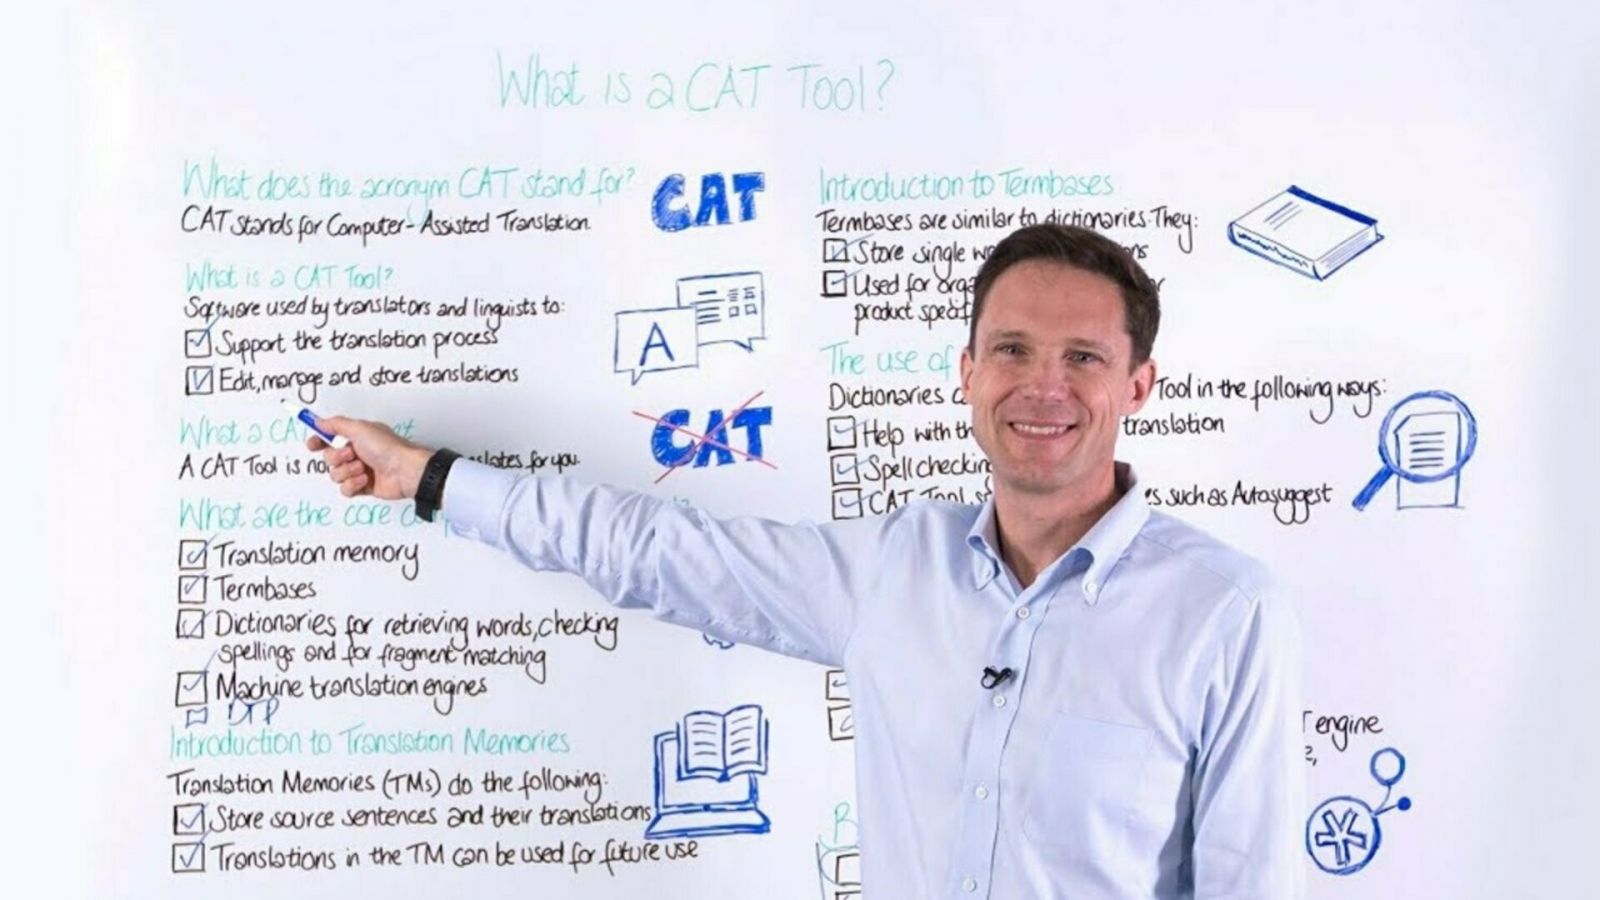 What is a CAT Tool?
What does the acronym CAT stand for?
CAT stands for Computer-Assisted Translation.
CAT
What is a CAT Tool?
Software used by translators and linguists to:
Support the translation process
Edit, manage and store translations
A
What a CAT
CAT
A CAT Tool is for you.
What are the core
Translation memory
Termbases
Dictionaries for retrieving words, checking
spellings and for fragment matching
Machine translation engines
DTP
Introduction to Translation Memories
Translation Memories (TMs) do the following:
Store source sentences and their translations
Translations in the TM can be used for future use
Introduction to Termbases
Termbases are similar to dictionaries. They:
Store single
Used for
product
The use of
Dictionaries Tool in the following ways:
Help with translation
Spell checking
CAT Tool such as Autosuggest
engine